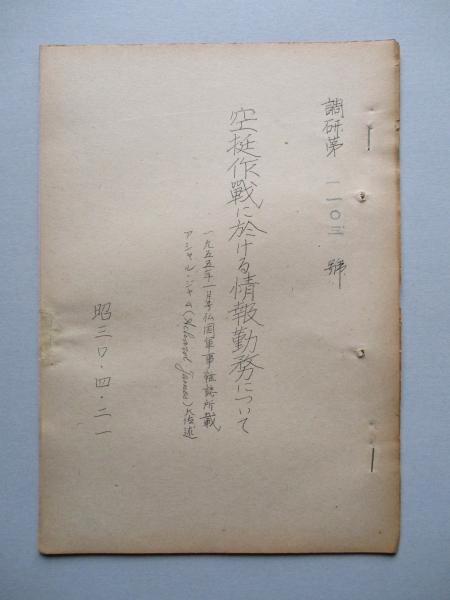 調研第一一〇三號
空挺作戰に於ける情報勤務について
一九五五年一月号仏国軍事雑誌所載
アシャル・ジャム(Achard James)大佐述
昭三〇・四・二一